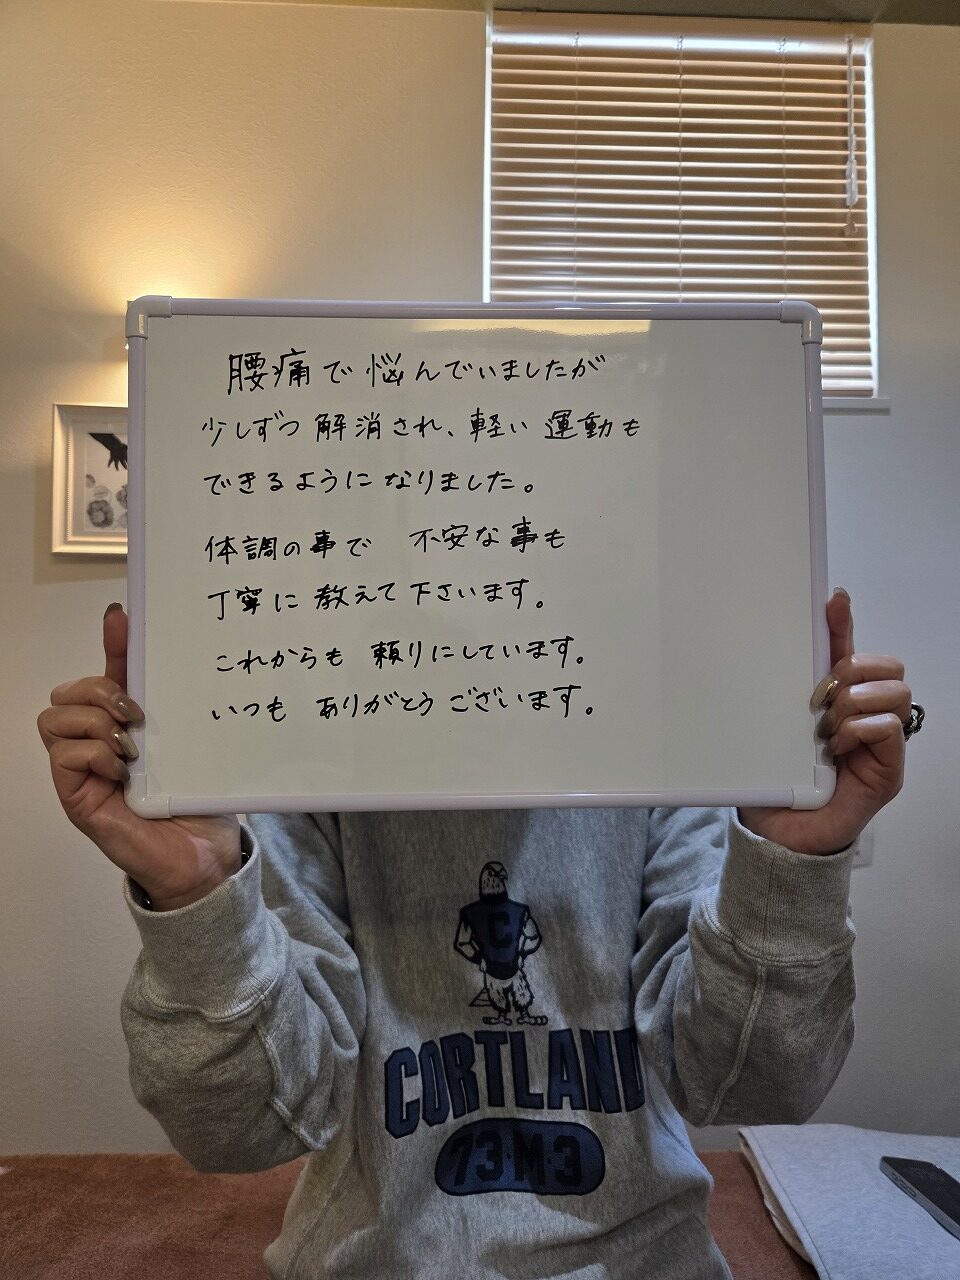 腰痛で悩んでいましたが
少しずつ解消され、軽い運動も
できるようになりました。
体調の事で 不安な事も
丁寧に教えて下さいます。
これからも 頼りにしています。
いつも ありがとうございます。
C
CORTLAND
73·M·3